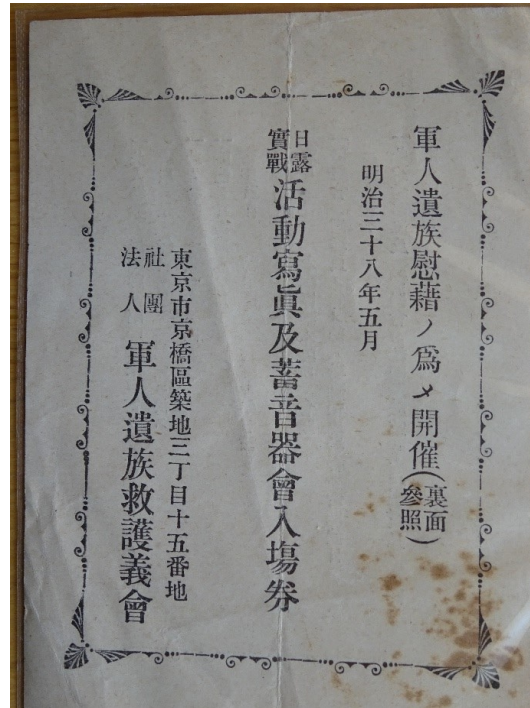 軍人遺族慰藉ノ爲メ開催(裏面參照)
明治三十八年五月
日露實戰活動寫眞及蓄音器會入場券
東京市京橋區築地三丁目十五番地
社團法人 軍人遺族救護義會